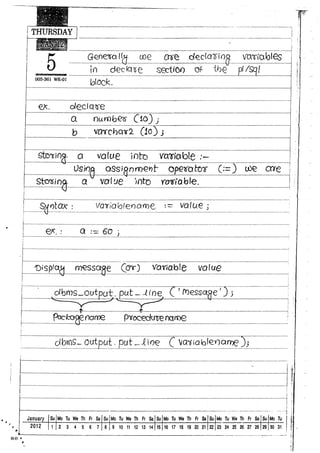 THURSDAY
5
005-361 WK-01
Generally we are declaring variables
in declare section of the pl/sql
block.
ex. declare
a number (10);
b varchar2 (10);
Storing a value into variable :-
Using assignment operator (:=) we are
Storing a value into variable.
Syntax : variablename := value ;
ex. : a := 60 ;
Display message (or) variable value
dbms_output.put_line ('message');
Packagename procedurename
dbms_output.put_line (variablename);
January Su Mo Tu We Th Fr Sa Su Mo Tu We Th Fr Sa Su Mo Tu We Th Fr Sa Su Mo Tu We Th Fr Sa Su Mo Tu
2012 1 2 3 4 5 6 7 8 9 10 11 12 13 14 15 16 17 18 19 20 21 22 23 24 25 26 27 28 29 30 31